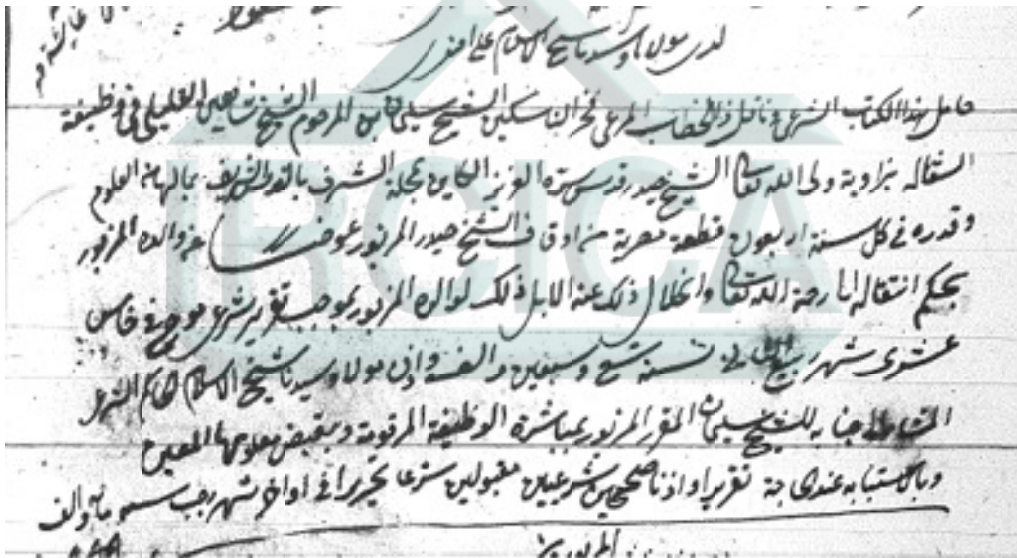 لدى مولانا وسيدنا شيخ الاسلام علي افندي
حامل هذا الكتاب الشرعي وناقل ذا الخطاب المرعي فخر السالكين الشيخ سليمان ابن المرحوم الشيخ شاهين الخليلي في وظيفة
السقاله بزاوية ولي الله تعالى الشيخ حيدر قدس سره العزيز الكاين بمحلة الشرف بالقدس الشريف بمالها من العلوم
وقدره في كل سنة اربعون قطعة مصرية من اوقاف الشيخ حيدر المزبور عوضا عن والده المزبور
بحكم انتقاله الى رحمة الله تعالى وانحلال ذلك عنه الايل ذلك لوالده المزبور بموجب تقرير شرعي مورخ في خامس
عشري شهر ربيع الثاني سنة تسع وسبعين والف واذن مولانا وسيدنا شيخ الاسلام الحاكم الشرعي
المشار اليه جنابه للشيخ سليمان المقرر المزبور بمباشرة الوظيفة المرقومة وبقبض معلومها المعين
وبالاستنابه عند الحاجة تقريرا واذنا صحيحين شرعيين مقبولين شرعا تحريرا في اواخر شهر رجب سنه والف